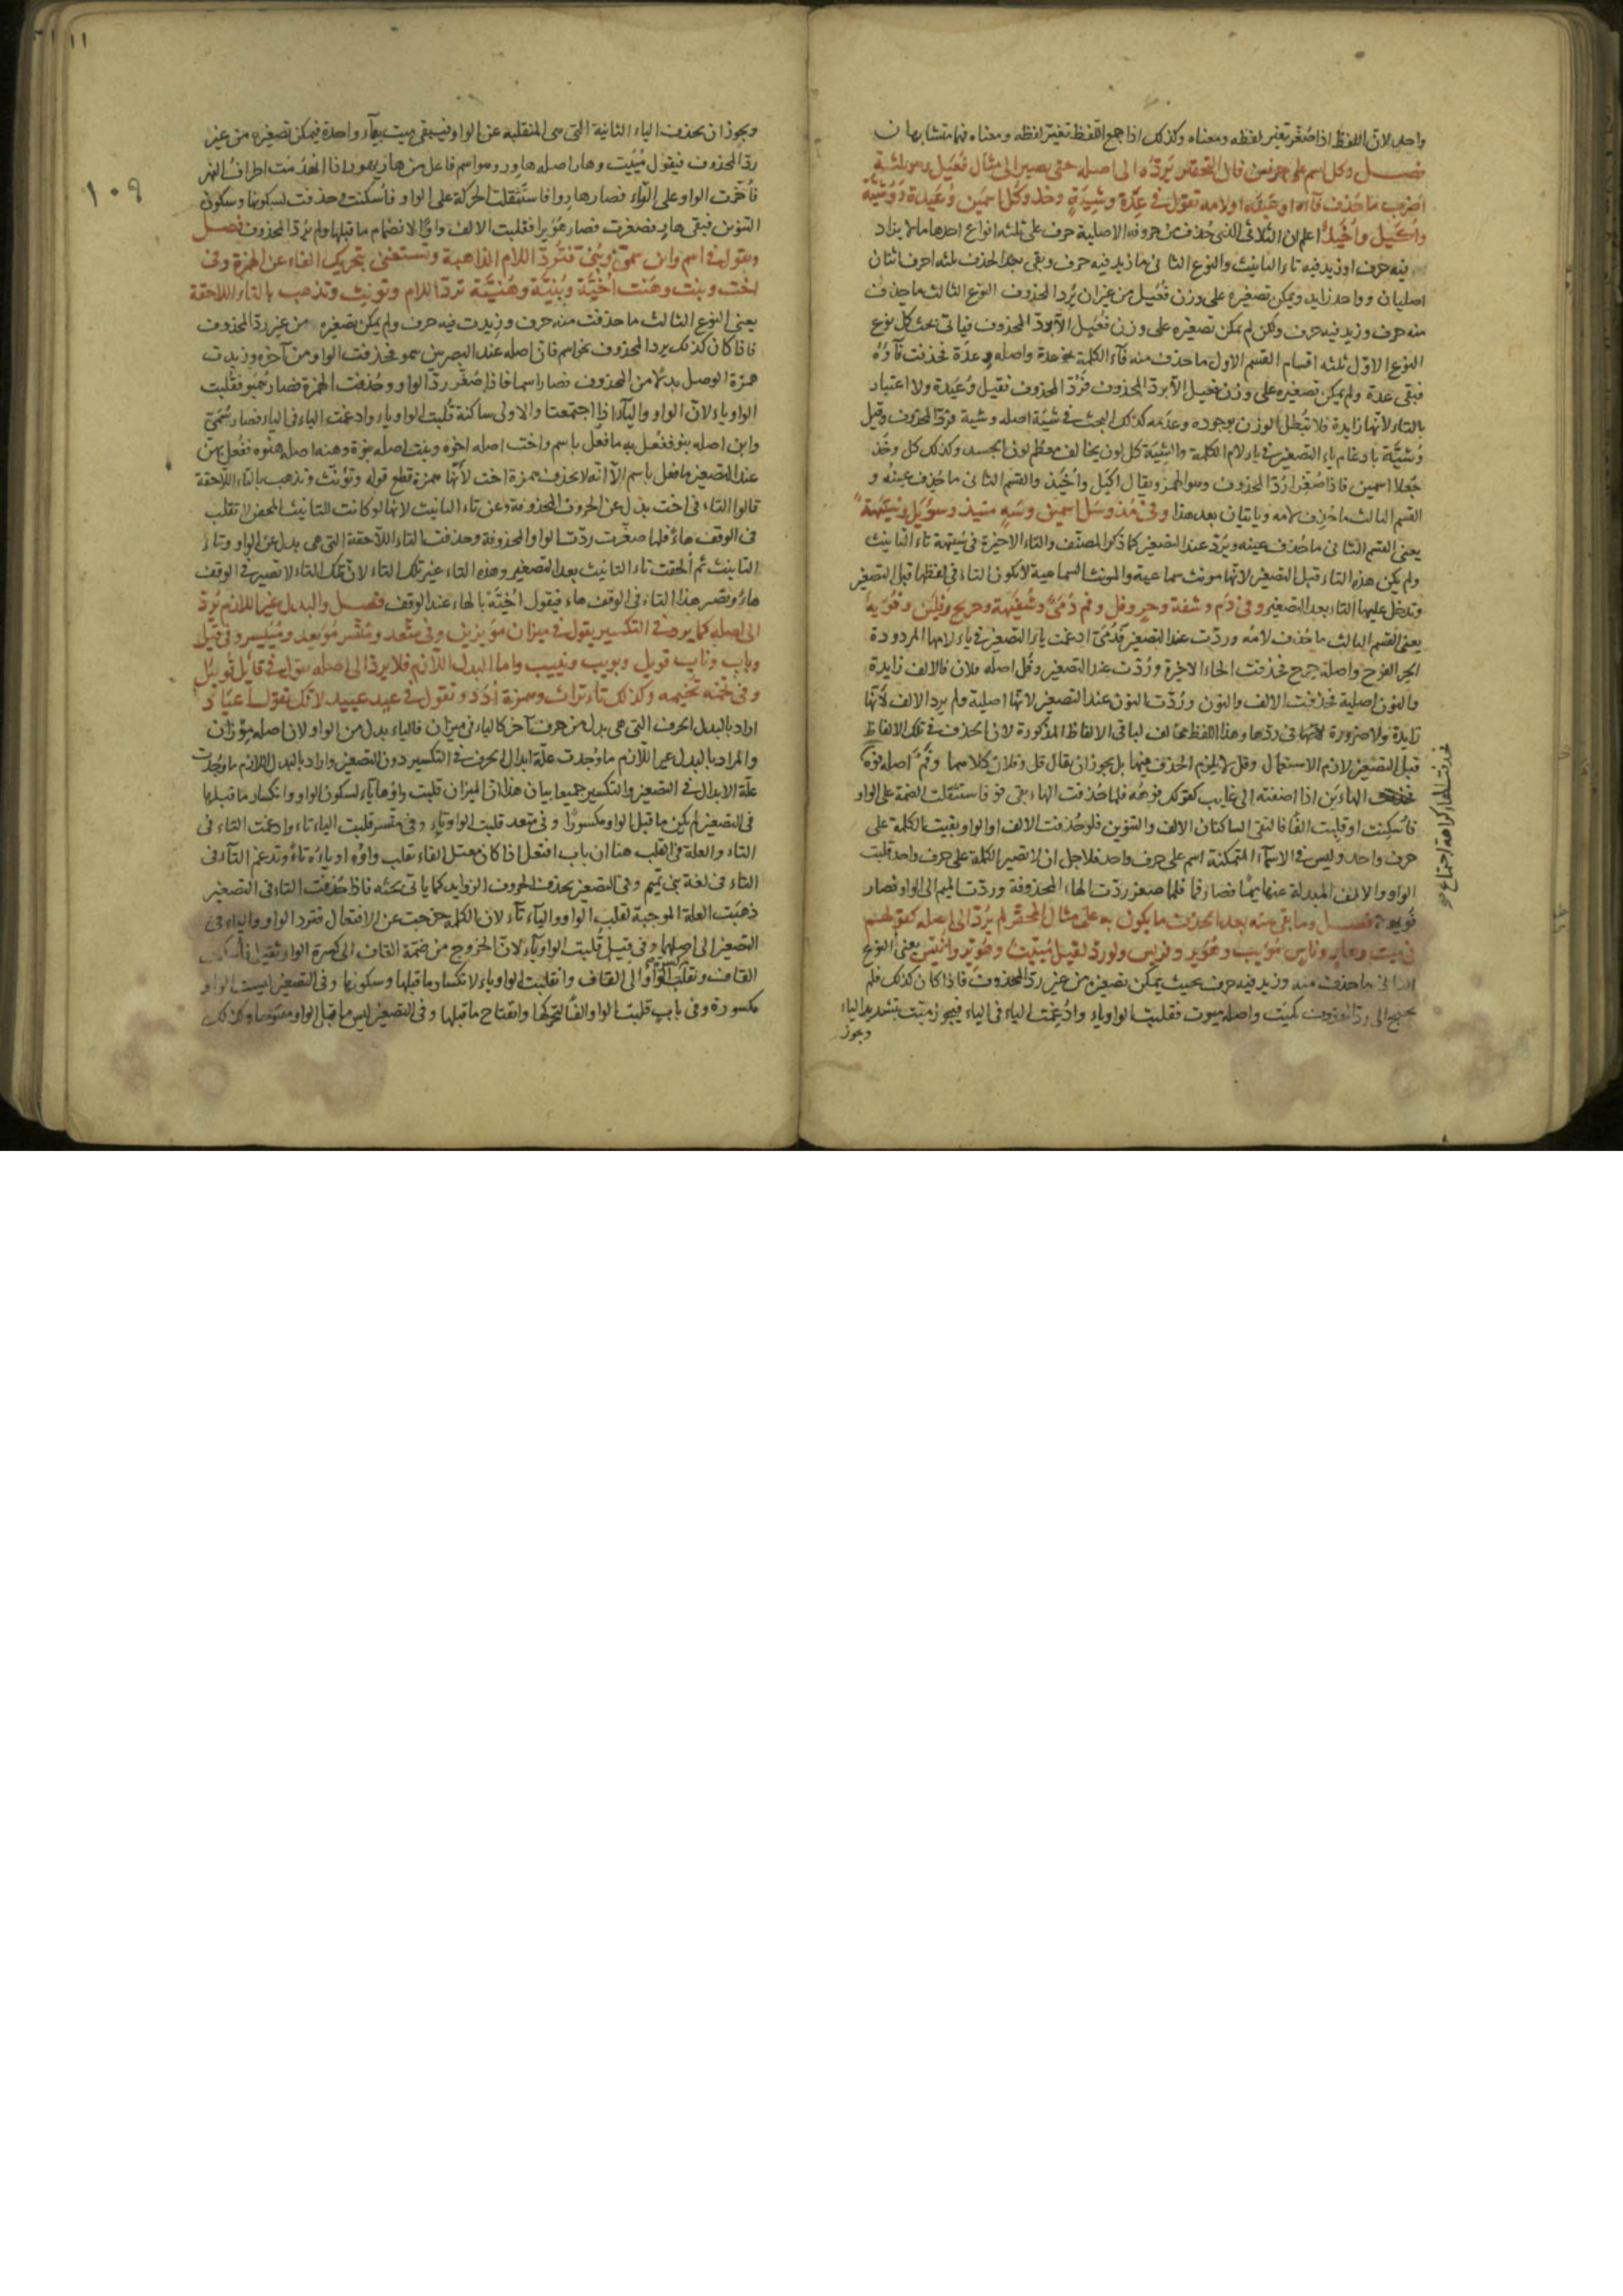 واحد لان اللفظ اذا صُغّر تغير لفظه ومعناه وكذلك اذا جمع اللفظ تغيّر لفظه ومعناه فهما متشابهان
فصل وكل اسم على حرفين فان التحقير يَردّه الى اصله حتى يصير الى مثال فُعَيل وهو ثلثة
اضرب ما حُذف فآءه او عينه او لامه تقول فى عِدَة وشِيَةٍ وخذ وكل اسمين وُعَيدة ووُشَيّة
واكَيل واُخَيذ اعلم ان الثلاثى الذى حُذف من حروفه الاصلية حرف على ثلثة انواع احدها ما لا يزاد
فيه حرف او زيد فيه تاء التانيث والنوع الثانى ما زيد فيه حرف وبقى بعد الحذف ثلثه احرف اثنان
اصليان وواحد زايد ويمكن تصغيره على وزن فُعَيل من غير ان يُرد المحذوف النوع الثالث ما حذف
منه حرف وزيد فيه حرف ولكن لم يمكن تصغيره على وزن فُعَيل الا بردّ المحذوف فياتى بحث كل نوع
النوع الاوّل ثلثه اقسام القسم الاول ما حذف منه فآء الكلمة نحو عدة واصله وِعدَة فحذفت فآؤه
فبقى عدة ولم يمكن تصغيره على وزن فعيل الا بردّ المحذوف فرُدّ المحذوف فقيل وُعَيدة ولا اعتبار
بالتاء لانها زايدة فلا تُبطل الوزن بوجوده وعدمه كذلك البحث فى شيَة اصله وشية فردّ المحذوف وقيل
وُشيَّة بادغام ياء التصغير فى ياء لام الكلمة والشِيَة كل لون يخالف معظم لون الجسد وكذلك كل وخُذ
جُعلا اسمين فاذا صُغّرا رُدّ المحذوف وهو الهمز ويقال اكَيل واُخَيذ والقسم الثانى ما حُذف عينُه و
القسم الثالث ما حُذف لامه وياتيان بعد هذا وفى مُذ وسَل اسمين وسَهٍ مُنَيذ وسؤَيل وسُتَيهَة
يعنى القسم الثانى ما حُذف عينه ويُردّ عند التصغير كما ذكر المصنّف والتاء الاخيرة فى سُتيهة تاء التانيث
ولم يكن هذه التاء قبل التصغير لانها مونث سماعية والمونث السماعية لا يكون التاء فى لفظها قبل التصغير
وتدخل عليها التاء بعد التصغير وفى دَم وشفة وحِرٍ وفل وفم دُمَىّ وشُفَيهة وحريح وفُلَين وفُوَيه
يعنى القسم الثالث ما حُذف لامُه وردّت عند التصغير فدُمَىّ ادغمت ياء التصغير فى ياء لامها المردودة
الحر الفرج واصله حِرح فحذفت الحاء الاخيرة ورُدّت عند التصغير وفُل اصله فلان فالالف زايدة
والنون اصلية فحُذفت الالف والنون ورُدّت النون عند التصغير لانّها اصلية ولم يرد الالف لانّها
زايدة ولا ضرورة لانّها فى ردّها وهذا اللفظ مخالف لباقى الالفاظ المذكورة لان الحذف فى تلك الالفاظ
قبل التصغير لازم الاستعمال وفل لا يلزم الحذف فيها بل يجوز ان يقال فل وفلان كلاهما وفَمٌ اصله فوهٌ
الهاءَين اذا اضفته الى غايب كقولك فوهُه فلما حُذفت الهاء بقى فو فاستثقلت الضمة على الواو
فاُسكنت او قلبت الفًا فالتقى الساكنان الالف والتنوين فلو حُذفت الالف او الواو بقيت الكلمة على
حرف واحد وليس فى الاسمآء المتمكنة اسم على حرف واحد فلاجل ان لا تصير الكلمة على حرف واحد قلبت
الواو والالف المبدلة عنها ميمًا فصار فمًا فلما صغر ردّت الهاء المحذوفة وردّت الميم الى الواو فصار
فُويه فصل وما بقى منه بعد الحذف ما يكون به على مثال المحقّر لم يُردّ الى اصله كقولهم
فى ميت وهارٍ وناس مُيَيت وهُوَير ونويس ولو ردّ لقيل مُيَيّت وهُوَيئر واُنَيس يعنى النوع
الثانى ما حذف منه وزيد فيه حرف بحيث يمكن تصغيره من غير ردّ المحذوف فاذا كان كذلك فلم
يحتج الى ردّ المحذوف كميّت واصله ميوت فقلبت الواو ياء واُدغمت الياء فى الياء فيجوز ميّت بتشديد الياء
ويجوز
فحذفت الهاء كراهة اجتماع
١٠٩
ويجوز ان يحذف الياء الثانية التى هى المنقلبة عن الواو فيبقى ميت بيآء واحدة فيمكن تصغيره من غير
ردّ المحذوف فيقول مُيَيت وهار اصله هاور وهو اسم فاعل من هار يهور اذا انهدمت اطراف النهر
فاُخّرت الواو على الرّاء فصار هاروا فاستثقلت الحركة على الواو فاُسكنت وحذفت لسكونها وسكون
التنوين فبقى هارٍ فصغرت فصار هُوَيرا فقلبت الالف واوًا لانضمام ما قبلها ولم يُردّ المحذوف فصل
وتقول فى اسم وابن سمىّ وبُنىّ فتُردّ اللام الذاهبة وتستغنى بتحريك الفاء عن الهمزة وفى
اخت وبنت وهَنت اُخَيّة وبُنيّة وهُنيّة تردّ اللام وتونث وتذهب بالتاء اللاحقة
يعنى النوع الثالث ما حذفت منه حرف وزيدت فيه حرف ولم يمكن تصغيره من غير ردّ المحذوف
فاذا كان كذلك يرد المحذوف نحو اسم فان اصله عند البصريين سمو فحذفت الواو من آخره وزيدت
همزة الوصل بدلا من المحذوف فصار اسما فاذا صُغّر ردّ الواو وحُذفت الهمزة فصار سُمَيو فقلبت
الواو ياء لانّ الواو واليآء اذا اجتمعتا والاولى ساكنة قُلبت الواو ياء وادغمت الياء فى الياء فصار سُمَىّ
وابن اصله بنو ففعل به ما فعل باسم واخت اصله اخوة وبنت اصله بنوة وهنه اصله هنوه ففعل بهن
عند التصغير ما فعل باسم الا انّه لا يحذف همزة اخت لانّها همزة قطع قوله وتؤنّث وتذهب بالتاء اللاحقة
قالوا التاء فى اخت بدل عن الحروف المحذوفة وعن تاء التانيث لانها لو كانت للتانيث المحض لا تقلب
فى الوقف هاءً فلما صغّرت ردّت الواو المحذوفة وحذفت التاء اللاحقة التى هى بدل عن الواو وتاء
التانيث ثم اُلحقت تاء التانيث بعد التصغير وهذه التاء غير تلك التاء لانّ تلك التاء لا تصير فى الوقف
هاءً وتصير هذا التاء فى الوقف هاء فيقول اُخَيّة بالهاء عند الوقف فصل والبدل غير اللازم يُردّ
الى اصله كما يردّ فى التكسير يقول فى ميزان مُوَيزين وفى متّعد ومتّسر مُوَيعد ومُيَيسر وفى قيل
وباب وناب قويل وبويب ونييب واما البدل اللازم فلا يردّ الى اصله تقول فى قائل قُويئل
وفى تخمة تخيمه وكذلك تاء تراث وهمزة اُدَد وتقول فى عيد عييد لانّك تقول اعياد
اراد بالبدل الحرف التى هى بدل من حرف آخر كالياء فى ميزان فالياء بدل من الواو لان اصله مِوْزان
والمراد بالبدل غير اللازم ما وُجدت علّة ابدال الحرف فى التكسير دون التصغير واراد بالبدل اللازم ما وُجدت
علّة الابدال فى التصغير والتكسير جميعا بيان هذا ان الميزان قلبت واوُها يآء لسكون الواو وانكسار ما قبلها
فى التصغير لم يكن ما قبل الواو مكسورًا وفى متعد قلبت الواو تاء وفى متسر قلبت الياء تاء وادغمت التاء فى
التاء والعلة فى القلب هنا ان باب افتعل اذا كان معتلّ الفاء تقلب واوُه او ياءُه تاءً وتدغم التآء فى
التاء فى لغة بنى تميم وفى التصغير يحذف الحروف الزوايد كما ياتى بحثه فاذا حُذفت التاء فى التصغير
ذهبت العلة الموجبة لقلب الواو واليآء تآء لان الكلمة خرجت عن الافتعال فترد الواو والياء فى
التصغير الى اصلهما وفى قيل قُلبت الواو يآء لانّ الخروج من ضمّة القاف الى كسرة الواو ثقيل فاُسكنت
القاف ونقلت كسرة الواو الى القاف وانقلبت الواو ياء لانكسار ما قبلها وسكونها وفى التصغير ليست الواو
مكسورة وفى باب قلبت الواو الفًا لتحرّكها وانفتاح ما قبلها وفى التصغير ليس ما قبل الواو مفتوحا وكذلك